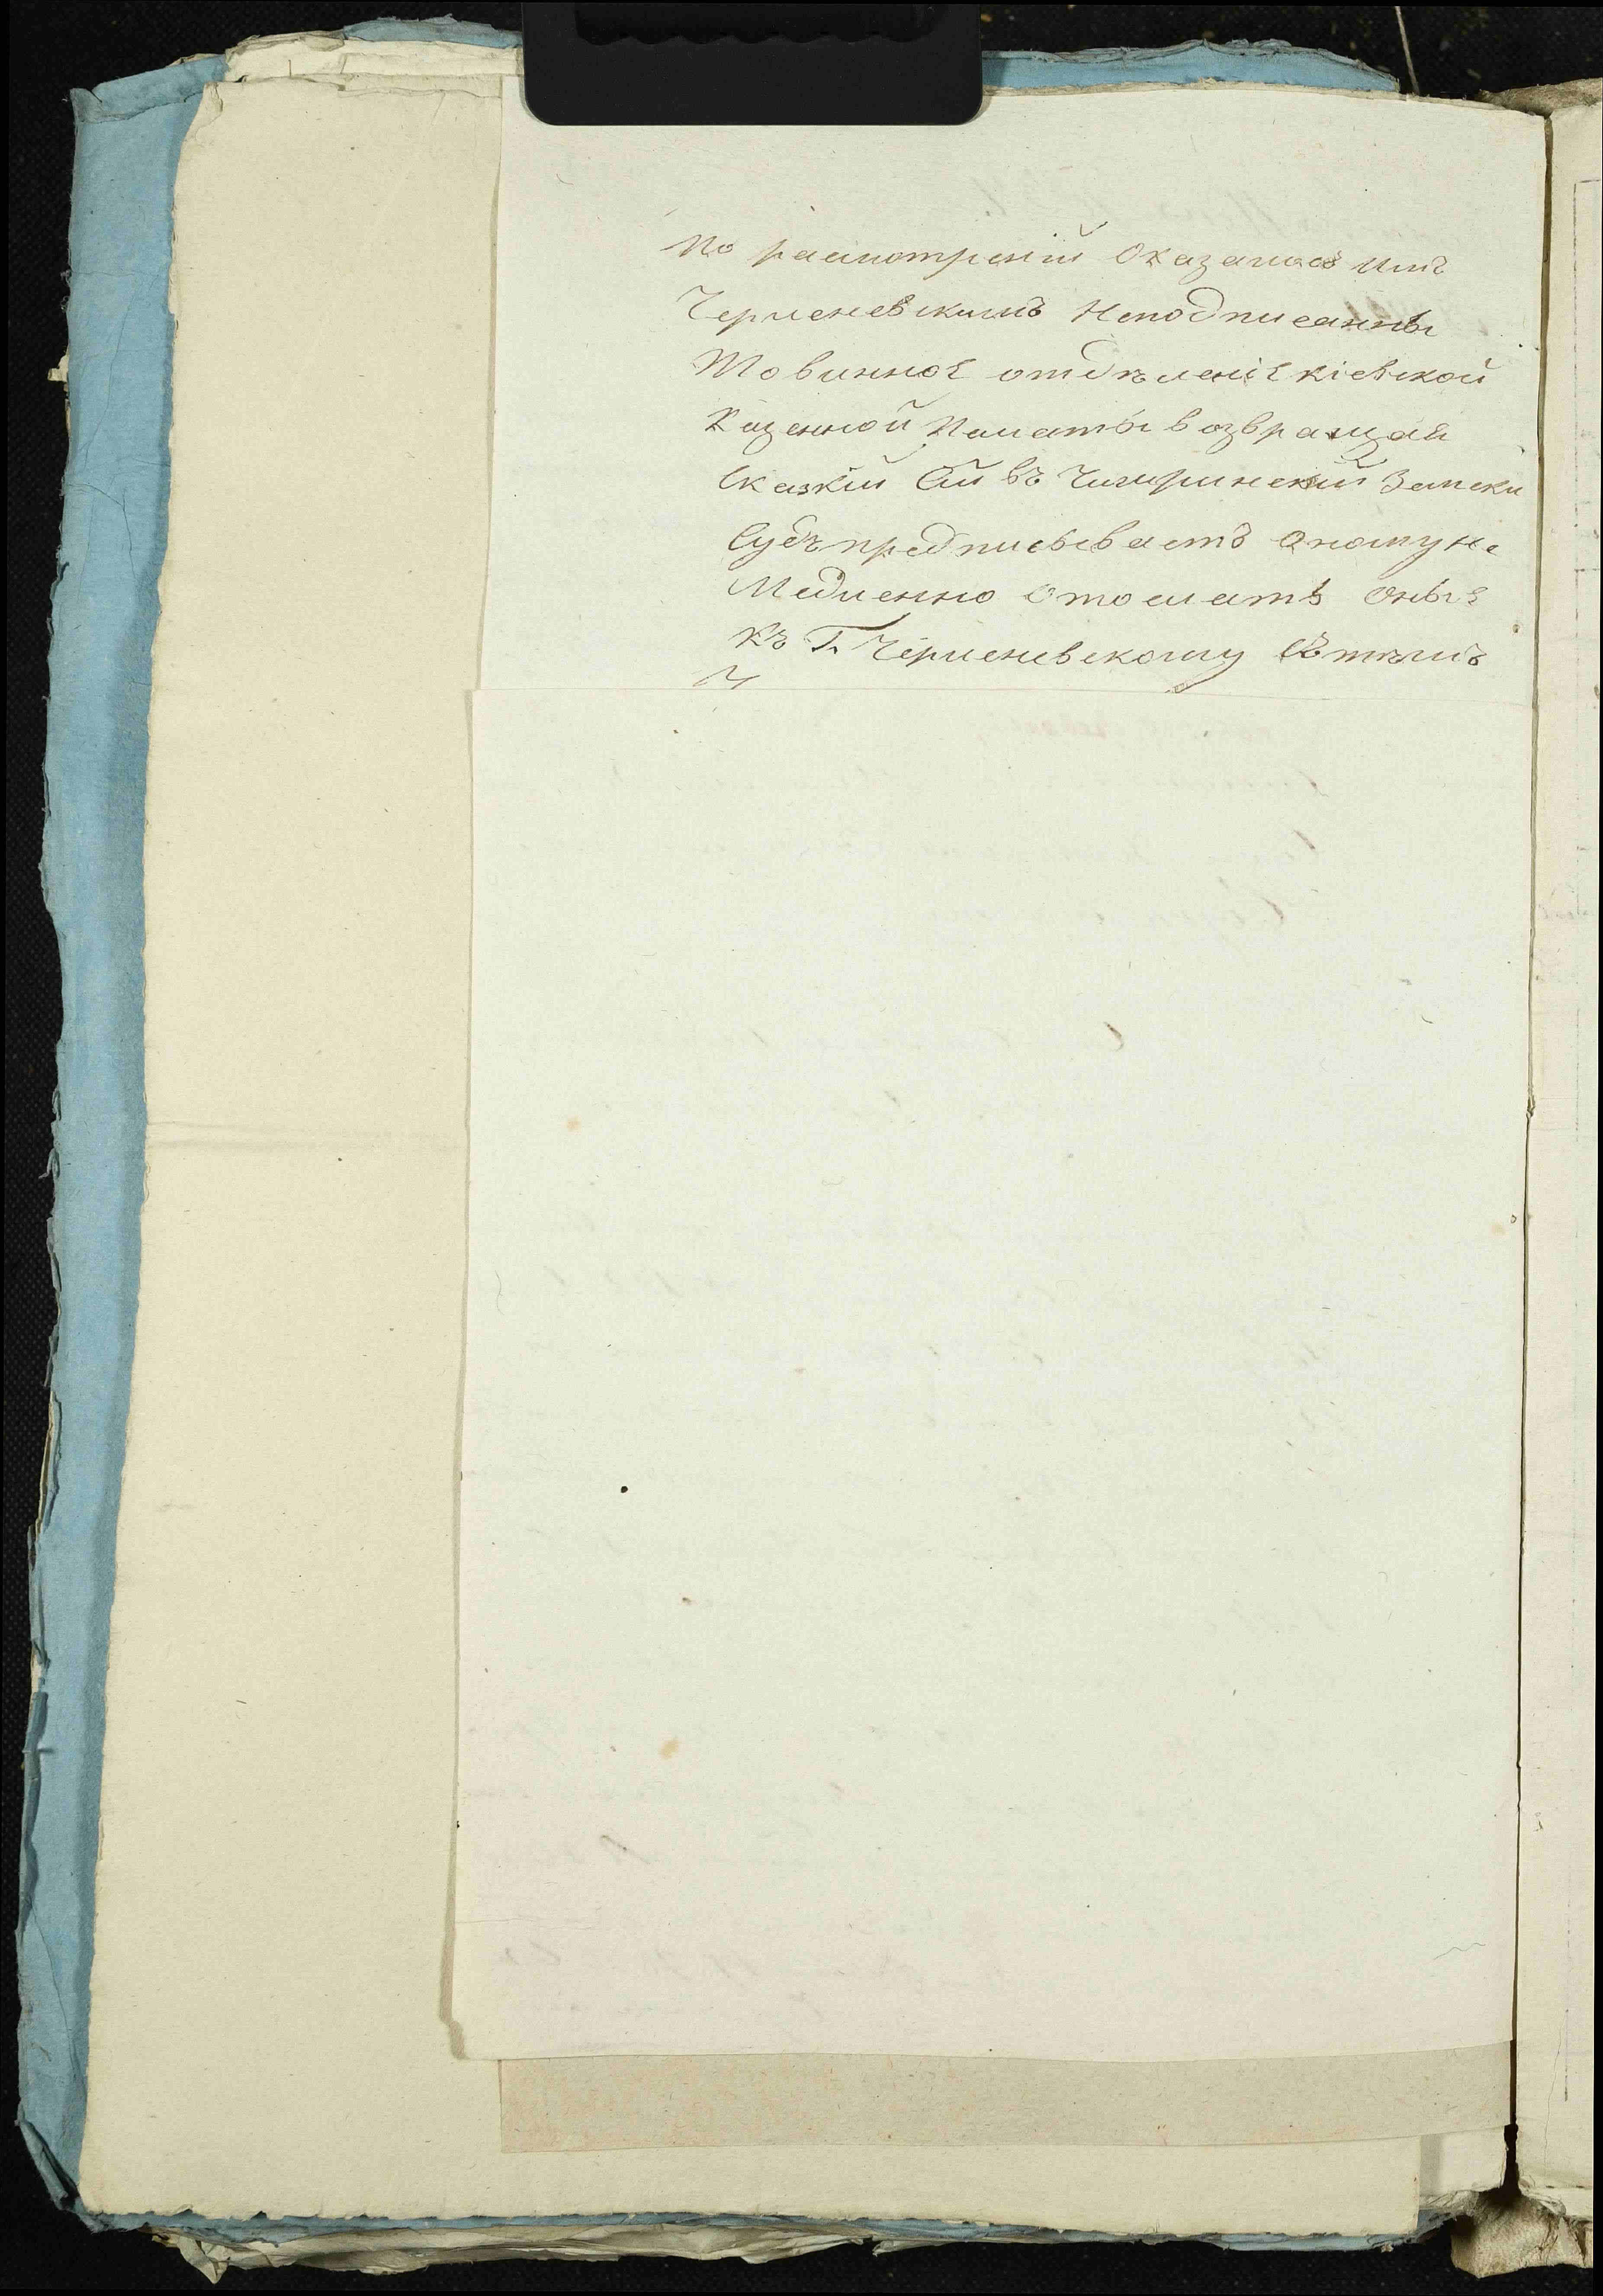 по расмотреній Оказалось имъ
Черленевскимъ Неподписанны
То винное отделеніе кіевской
Казенной Палаты возвращая
Сказкіи Сіи въ Чигиринскій Земски
Судъ предписываетъ Оному не
Медленно Отослать оные
къ Г. Черленевскому Съ темъ